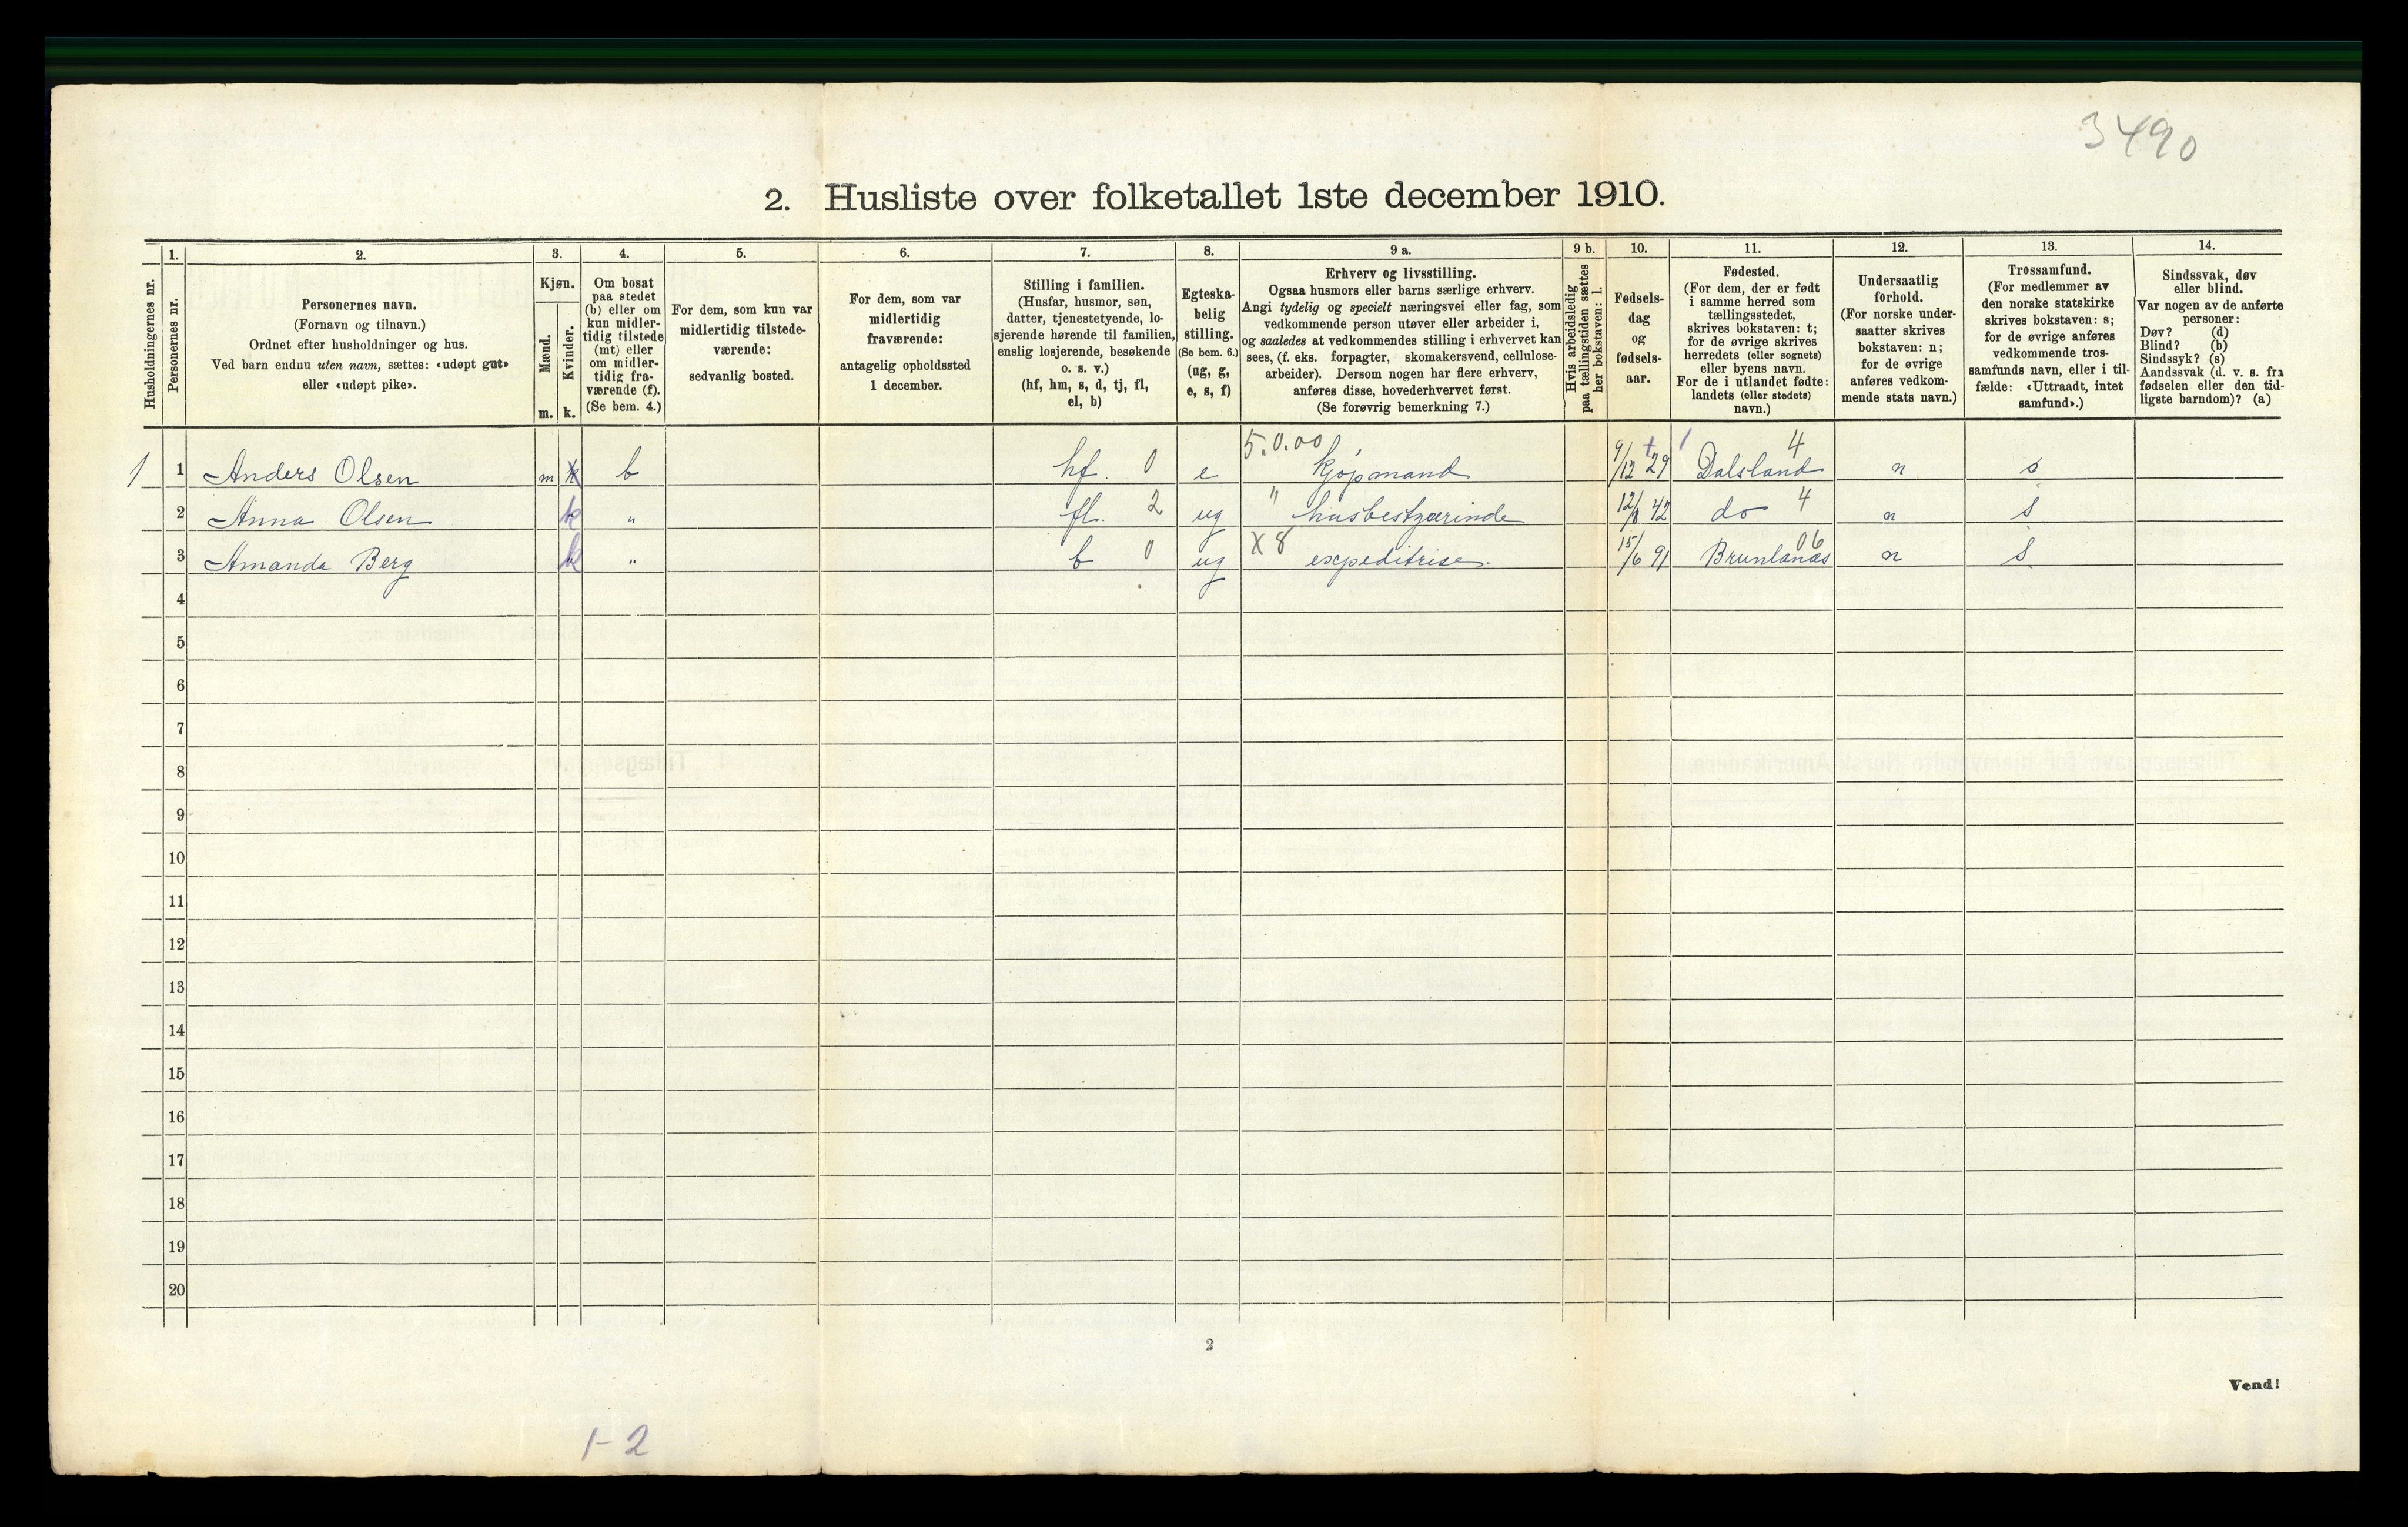 3490
2. Husliste over folketallet 1ste december 1910.
Husholdningernes nr.
1.
Personernes nr.
2.
Personernes navn.
(Fornavn og tilnavn.)
Ordnet efter husholdninger og hus.
Ved barn endnu uten navn, sættes: «udøpt gut»
eller «udøpt pike».
3.
Kjøn.
Mænd.
Kvinder.
m. k.
4.
Om bosat
paa stedet
(b) eller om
kun midler-
tidig tilstede
(mt) eller
om midler-
tidig fra-
værende (f).
(Se bem. 4.)
5.
For dem, som kun var
midlertidig tilstede-
værende:
sedvanlig bosted.
6.
For dem, som var
midlertidig
fraværende:
antagelig opholdssted
1 december.
7.
Stilling i familien.
(Husfar, husmor, søn,
datter, tjenestetyende, lo-
sjerende hørende til familien,
enslig losjerende, besøkende
o. s. v.)
(hf, hm, s, d, tj, fl,
el, b)
8.
Egteska-
belig
stilling.
(Se bem. 6.)
(ug, g,
e, s, f)
9 a.
Erhverv og livsstilling.
Ogsaa husmors eller barns særlige erhverv.
Angi tydelig og specielt næringsvei eller fag, som
vedkommende person utøver eller arbeider i,
og saaledes at vedkommendes stilling i erhvervet kan
sees, (f. eks. forpagter, skomakersvend, cellulose-
arbeider). Dersom nogen har flere erhverv,
anføres disse, hovederhvervet først.
(Se forøvrig bemerkning 7.)
9 b.
Hvis arbeidsledig
paa tællingstiden sættes
her bokstaven: l.
10.
Fødsels-
dag
og
fødsels-
aar.
11.
Fødested.
(For dem, der er født
i samme herred som
tællingsstedet,
skrives bokstaven: t;
for de øvrige skrives
herredets (eller sognets)
eller byens navn.
For de i utlandet fødte:
landets (eller stedets)
navn.)
12.
Undersaatlig
forhold.
(For norske under-
saatter skrives
bokstaven: n;
for de øvrige
anføres vedkom-
mende stats navn.)
13.
Trossamfund.
(For medlemmer av
den norske statskirke
skrives bokstaven: s;
for de øvrige anføres
vedkommende tros-
samfunds navn, eller i til-
fælde: «Uttraadt, intet
samfund».)
14.
Sindssvak, døv
eller blind.
Var nogen av de anførte
personer:
Døv? (d)
Blind? (b)
Sindssyk? (s)
Aandssvak (d. v. s. fra
fødselen eller den tid-
ligste barndom)? (a)
5.0.00 4
1 1 Anders Olsen m k b hf. 0 e kjøpmand 9/12 29 Dalsland n s
2 Anna Olsen k " fl. 2 ug " husbestyrerinde 12/8 42 do 4 n s
3 Amanda Berg k " b 0 ug X8 expeditrise. 15/6 91 Brunlanæs 06 n s
4
5
6
7
8
9
10
11
12
13
14
15
16
17
18
19
20
2
Vend!
1-2